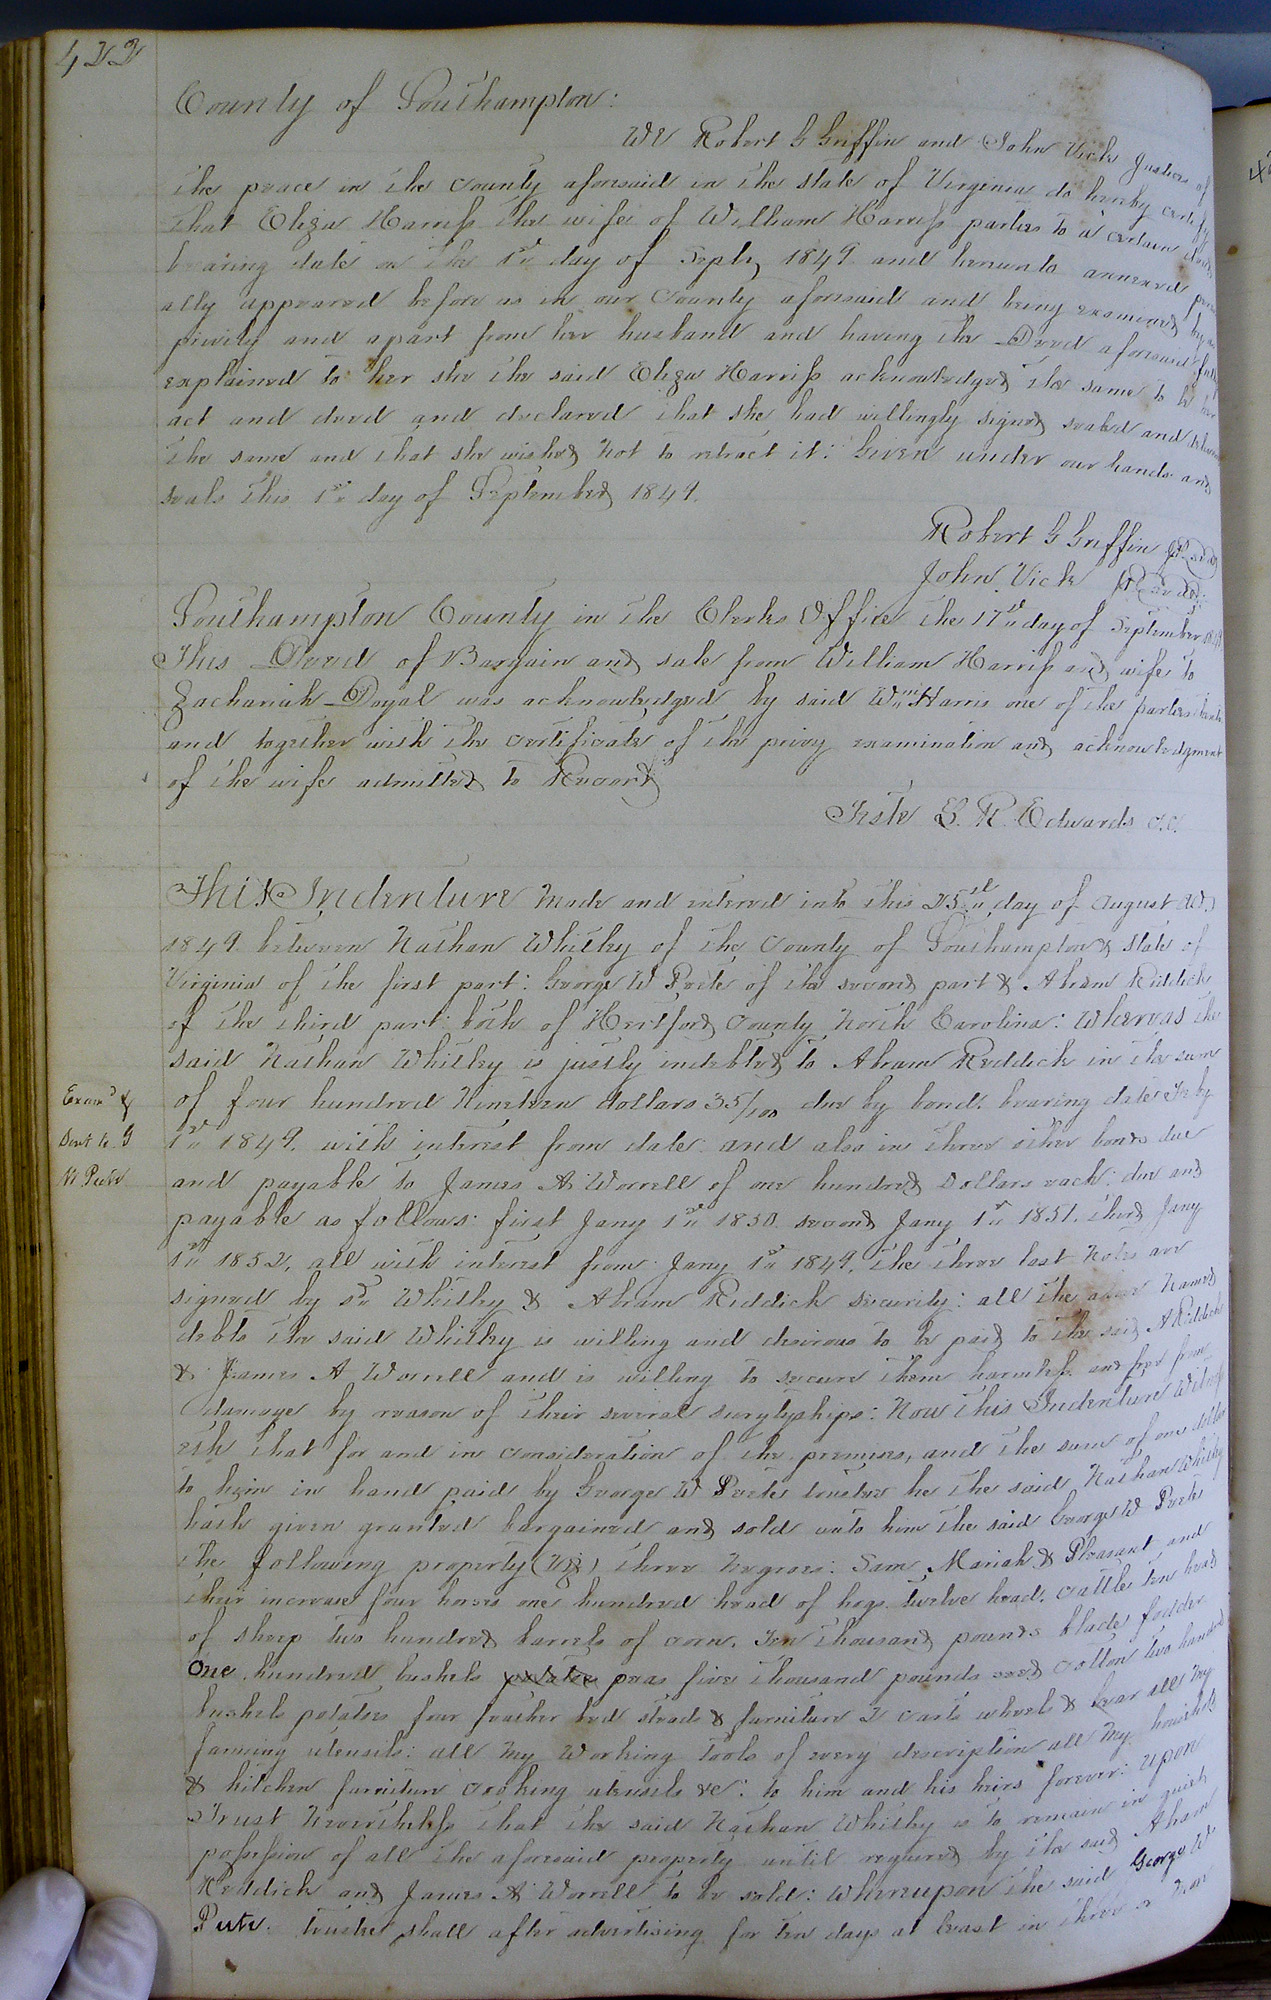 422
County of Southampton:
We Robert G Griffin and John Vick Justices of
the peace in the County aforesaid in the state of Virginia do hereby certify
that Eliza Harriss the wife of William Harriss parties to a certain deed
bearing date on the 1st day of Septr, 1849 and hereunto annexed person
ally appeared before us in our County aforesaid and being examined by us
privily and apart from her husband and having the Deed aforesaid fully
explained to her she the said Eliza Harriss acknowledged the same to be her
act and deed and declared that she had willingly signed sealed and delivered
the same and that she wished not to retract it: Given under our hands and
seals this 1st day of September 1849.
Robert G Griffin
John Vick
Southampton County in the Clerks Office the 17th day of September 1849
This Deed of Bargain and sale from William Harriss and wife to
Zachariah Doyal was acknowledged by said Wm Harris one of the parties thereto
and together with the certificate of the privy examination and acknowledgment
of the wife admitted to Record
Teste L. R. Edwards c.c.
This Indenture made and entered into this 25th day of August AD.
1849 between Nathan Whitley of the County of Southampton & state of
Virginia of the first part: George W Peete of the second part & Abram Riddick
of the third part: both of Hertford County North Carolina: Whereas the
said Nathan Whitley is justly indebted to Abram Reddick in the sum
Exam'd &
of four hundred Nineteen dollars 35/100 due by bond. bearing date Feby
Sent to G
1st 1849. with interest from date. and also in three other bonds due
W Peete
and payable to James A. Worrell of one hundred Dollars each: due and
payable as follows: first Jany 1st 1850. second Jany 1st 1851. third Jany
1st 1852, all with interest from Jany 1st 1849, the three last Notes are
signed by sd Whitley & Abram Riddick security: all the above Named
debts the said Whitley is willing and desirous to be paid to the said A Riddick
& James A Worrell and is willing to secure them harmless and free from
damage by reason of their several suretyships: Now this Indenture Witness
eth that for and in consideration of the premises, and the sum of one dollar
to him in hand paid by George W Peete trustee he the said Nathan Whitley
hath given granted bargained and sold unto him the said George W Peete
the following property (Viz) three Negroes: Sam Mariah & Pleasant and
their increase four horses one hundred head of hogs. twelve head. cattle ten head
of sheep two hundred barrels of corn. Ten thousand pounds blade fodder
One hundred bushels potatoe peas five thousand pounds seed cotton two hundred
bushels potatoes four feather bed steads & furniture 2 carts wheels & gear all my
farming utensils: all my Working Tools of every description all my household
& kitchen furniture cooking utensils &c: to him and his heirs forever: upon
Trust Nevertheless that the said Nathan Whitley is to remain in quiet
possession of all the aforesaid property until required by the said Abram
Reddick and James A Worrell to be sold: Whereupon the said George W
Peete. trustee shall after advertising for ten days at least in three or more